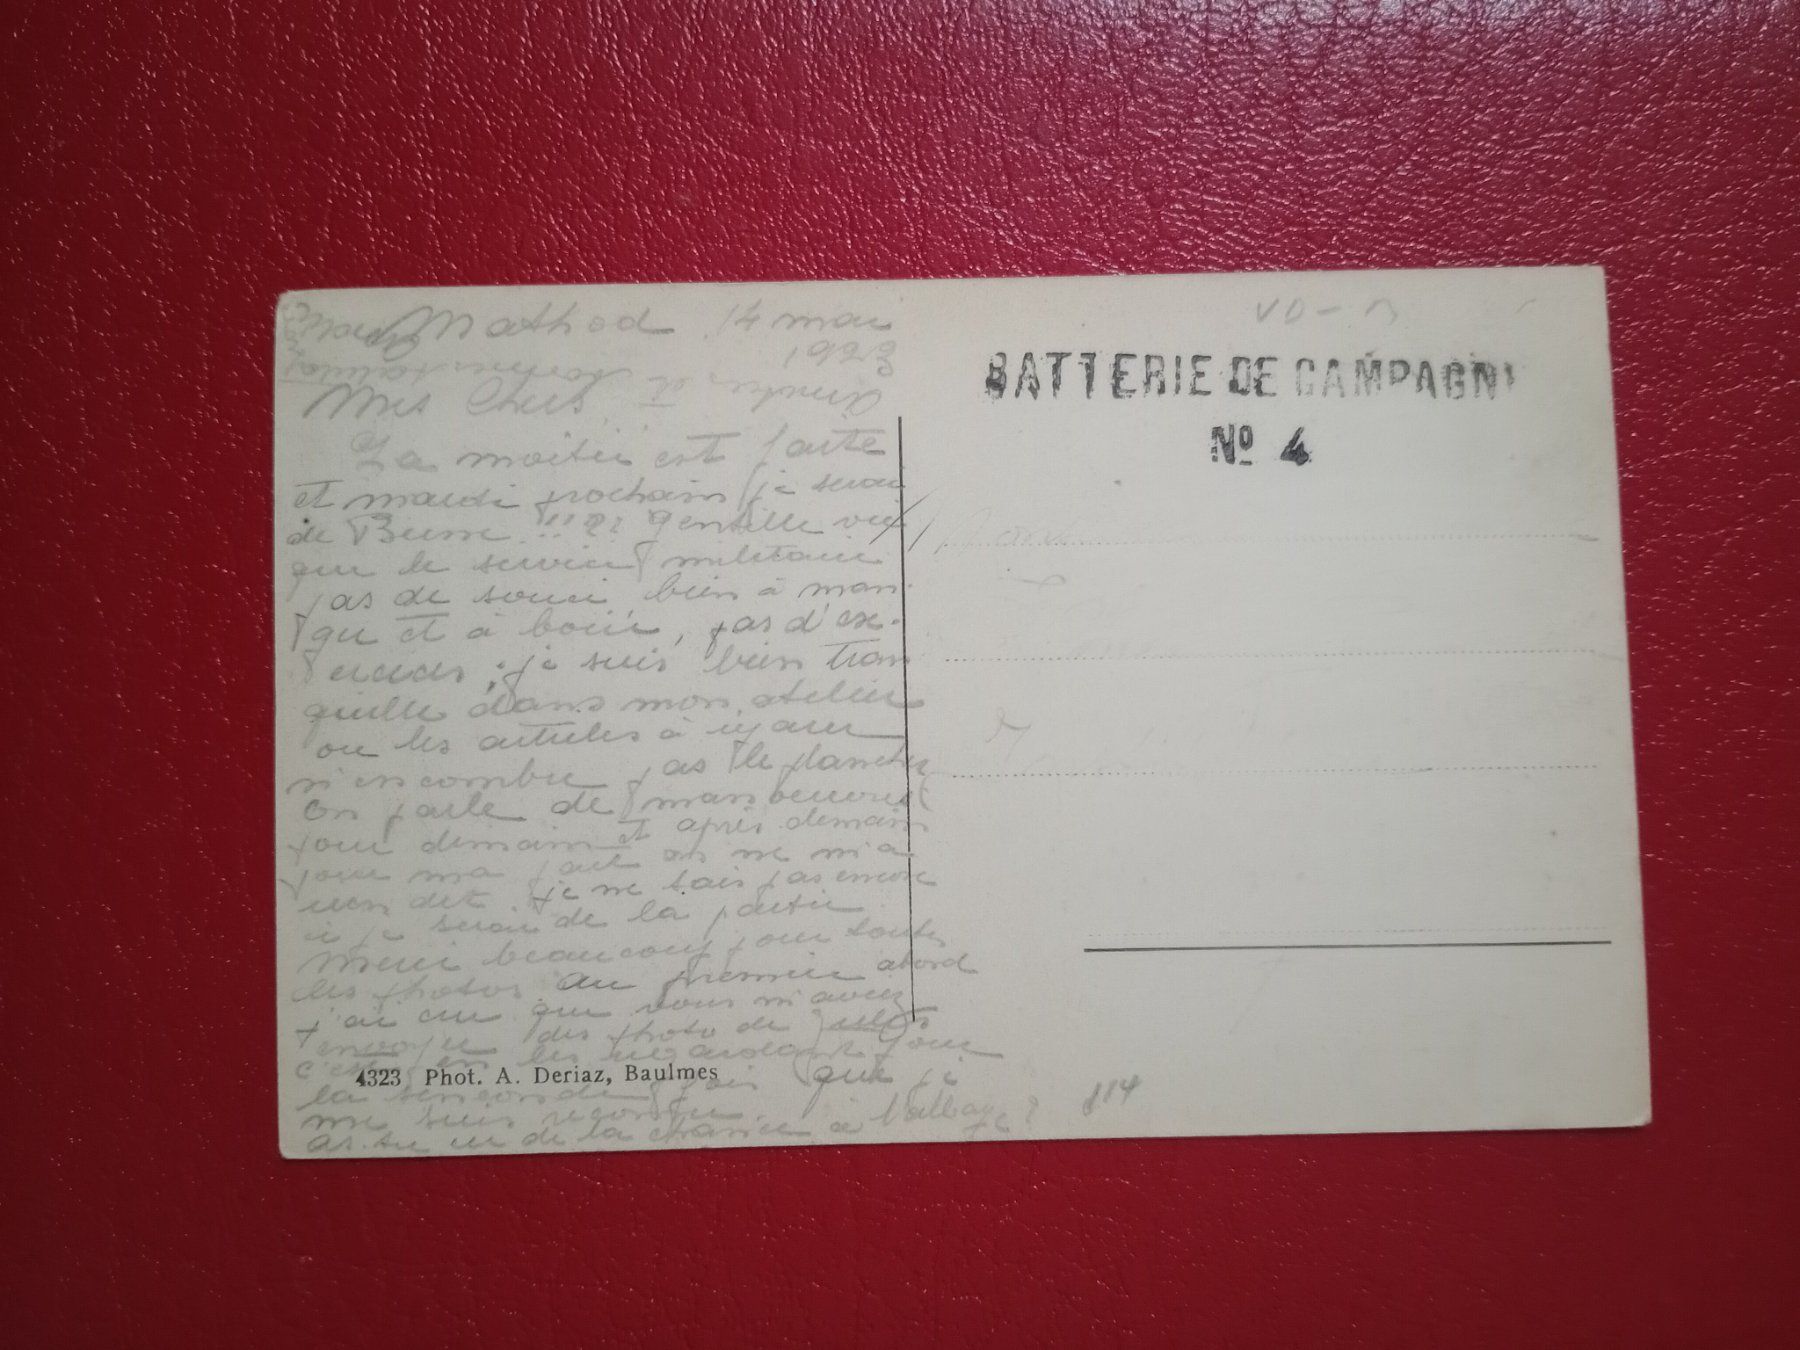 Mathod 14 mai
1923
Mes Chers,
La moitié est faite
et mardi prochain je serai
de Berne !! Gentille vie
que le service militaire
pas de souci bien à man-
ger et à boire, pas d'ex-
ercices; je suis bien tran
quille dans mon atelier
ou les articles à
n'encombre pas le plancher
on parle de manoeuvres
pour demain et après demain
pour ma part on ne m'a
rien dit je ne sais pas encore
si je serai de la partie
Merci beaucoup pour toutes
les photos au premier abord
j'ai cru que vous m'aviez
envoyer des photo de
c'est en les regardant pour
la seconde fois que je
me suis
as-tu eu de la chance à
4323 Phot. A. Deriaz, Baulmes
114
VD -
BATTERIE DE CAMPAGN
No 4